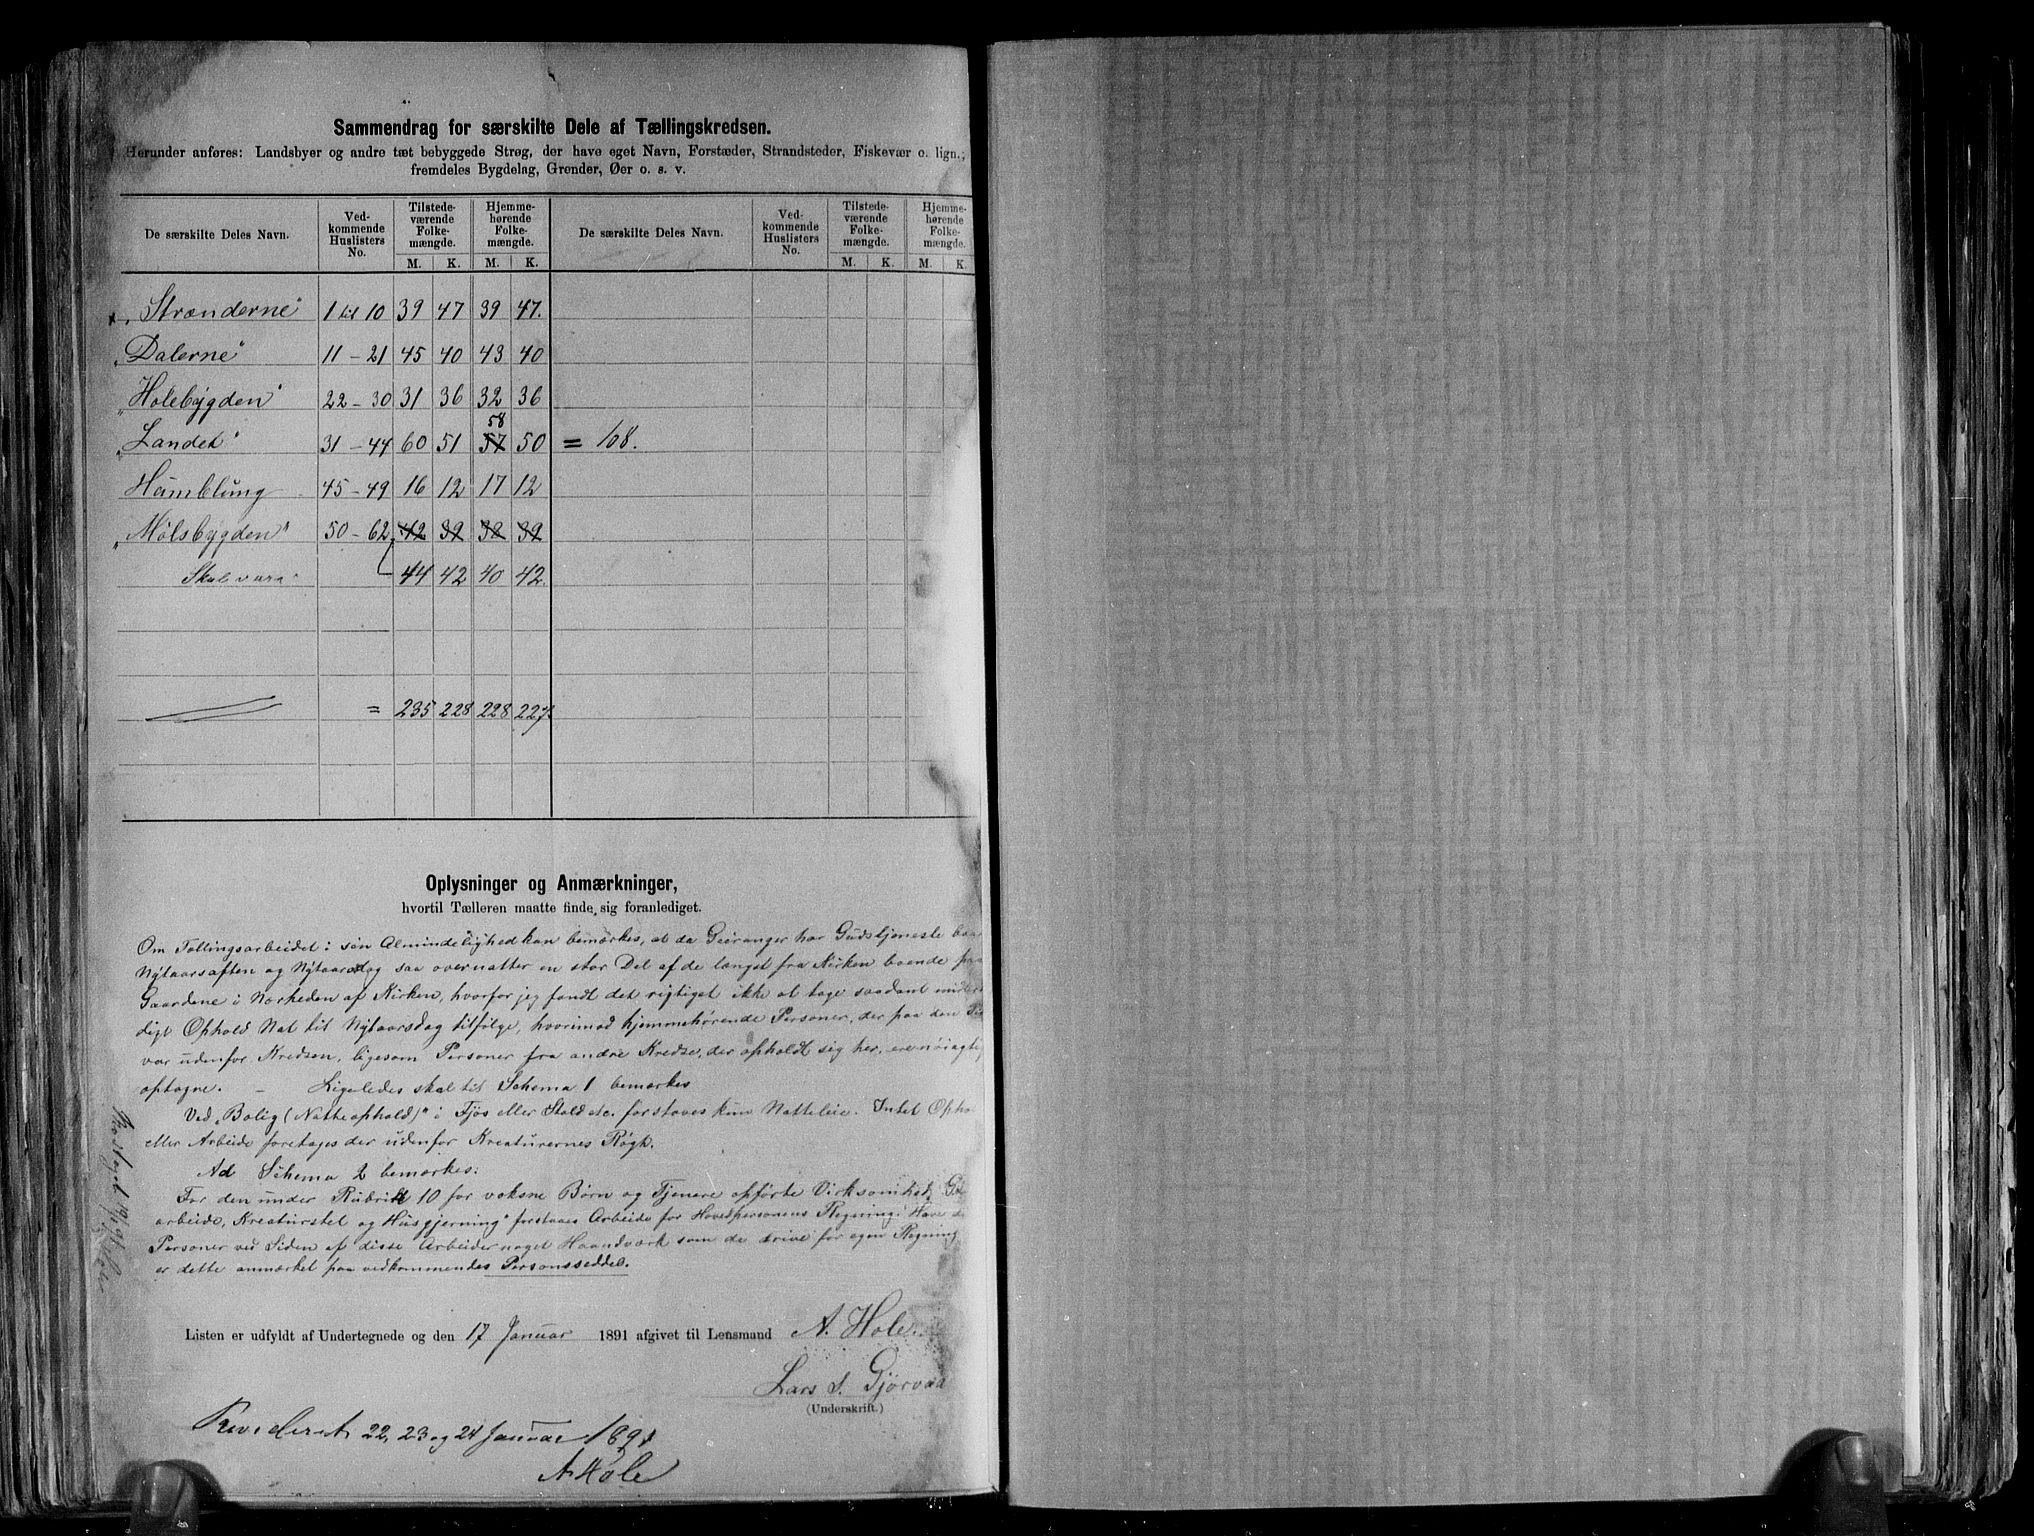 Sammendrag for særskilte Dele af Tællingskredsen.
Herunder anføres: Landsbyer og andre tæt bebyggede Strøg, der have eget Navn, Forstæder, Strandsteder, Fiskevær o. lign.;
fremdeles Bygdelag, Grender, Øer o. s. v.
De særskilte Deles Navn. Ved-kommende Huslisters No. Tilstede-værende Folke-mængde. Hjemme-hørende Folke-mængde. De særskilte Deles Navn. Ved-kommende Huslisters No. Tilstede-værende Folke-mængde. Hjemme-hørende Folke-mængde.
M. K. M. K. M. K. M. K.
„Strænderne“ 1 til 10 39 47 39 47.
„Dalerne“ 11 - 21 45 40 43 40
„Holebygden“ 22 - 30 31 36 32 36
58
„Landet“ 31 - 44 60 51 57 50 = 108.
Humblung 45 - 49 16 12 17 12
„Mølsbygden“ 50 - 62 42 39 38 39
Skal være 44 42 40 42.
= 235 228 228 227
Oplysninger og Anmærkninger,
hvortil Tælleren maatte finde sig foranlediget.
Om Tællingsarbeidet i sen Almindelighed kan bemærkes, at da Geiranger har Gudstjeneste baa
Nytaarsaften og Nytaarsdag saa overnatter en stor Del af de længst fra Kirken boende paa
Gaardene i Nærheden af Kirken, hvorfor jeg fandt det rigtiget ikke at tage saadant midler
digt Ophold Nat til Nytaarsdag tilfølge, hvorimod hjemmehørende Personer, der paa den Tid
var udenfor Kredsen, ligesom Personer fra andre Kredse, der opholdt sig her, ere nøiagtig
optagne. - Ligeledes skal til Schema 1 bemærkes
Ved „Bolig (Natteophold)“ i Fjøs eller Stald etc. forstaves kun Natteleie. Intet Opho
eller Arbeide foretages der udenfor Kreaturernes Røgt.
Ad Schema 2 bemærkes:
For den under Rubrik 10 for voksne Børn og Tjenere opførte Virksomhet,
arbeide, Kreaturstel og Husgjerning“ forstaaes Arbeide for Hovedpersonens Regning. Have
Personer ved Siden af disse Arbeider noget Haandværk som de drive for egen Regning
er dette anmærket paa vedkommendes Personsseddel.
Listen er udfyldt af Undertegnede og den 17 Januar 1891 afgivet til Lensmand A. Hole.
Lars S. Gjørvad
(Underskrift.)
Revideret 22, 23 og 24 Januar 1891
A Hole